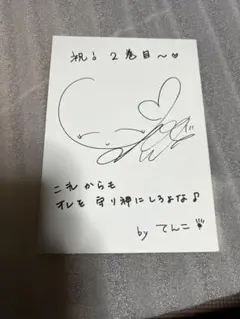 祝!2巻目〜♡
これからも
オレを守り神にしろよな♪
by てんこ